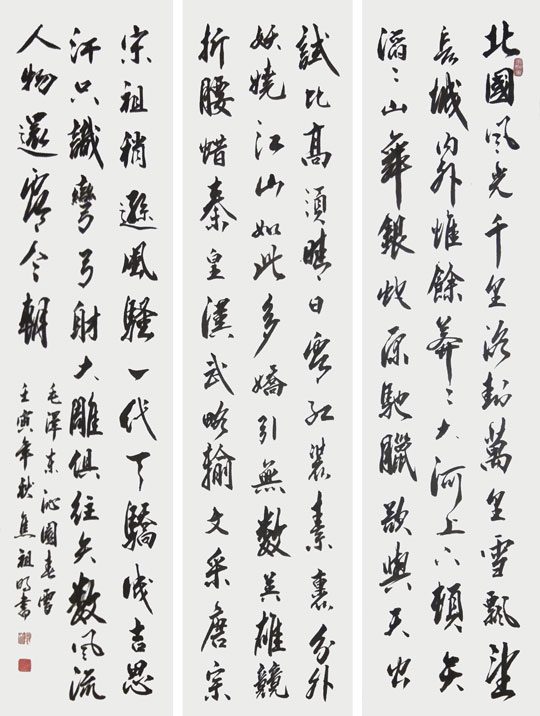 北國風光千里冰封萬里雪飄望
長城内外惟餘莽々大河上下頓失
滔々山舞銀蛇原馳臘欲與天公
試比高須晴日看紅裝素裹分外
妖嬈江山如此多嬌引無數英雄競
折腰惜秦皇漢武略輸文采唐宗
宋祖稍遜風騷一代天驕成吉思
汗只識彎弓射大雕俱往矣數風流
人物還看今朝
毛澤東沁園春雪
壬寅年秋焦祖明書